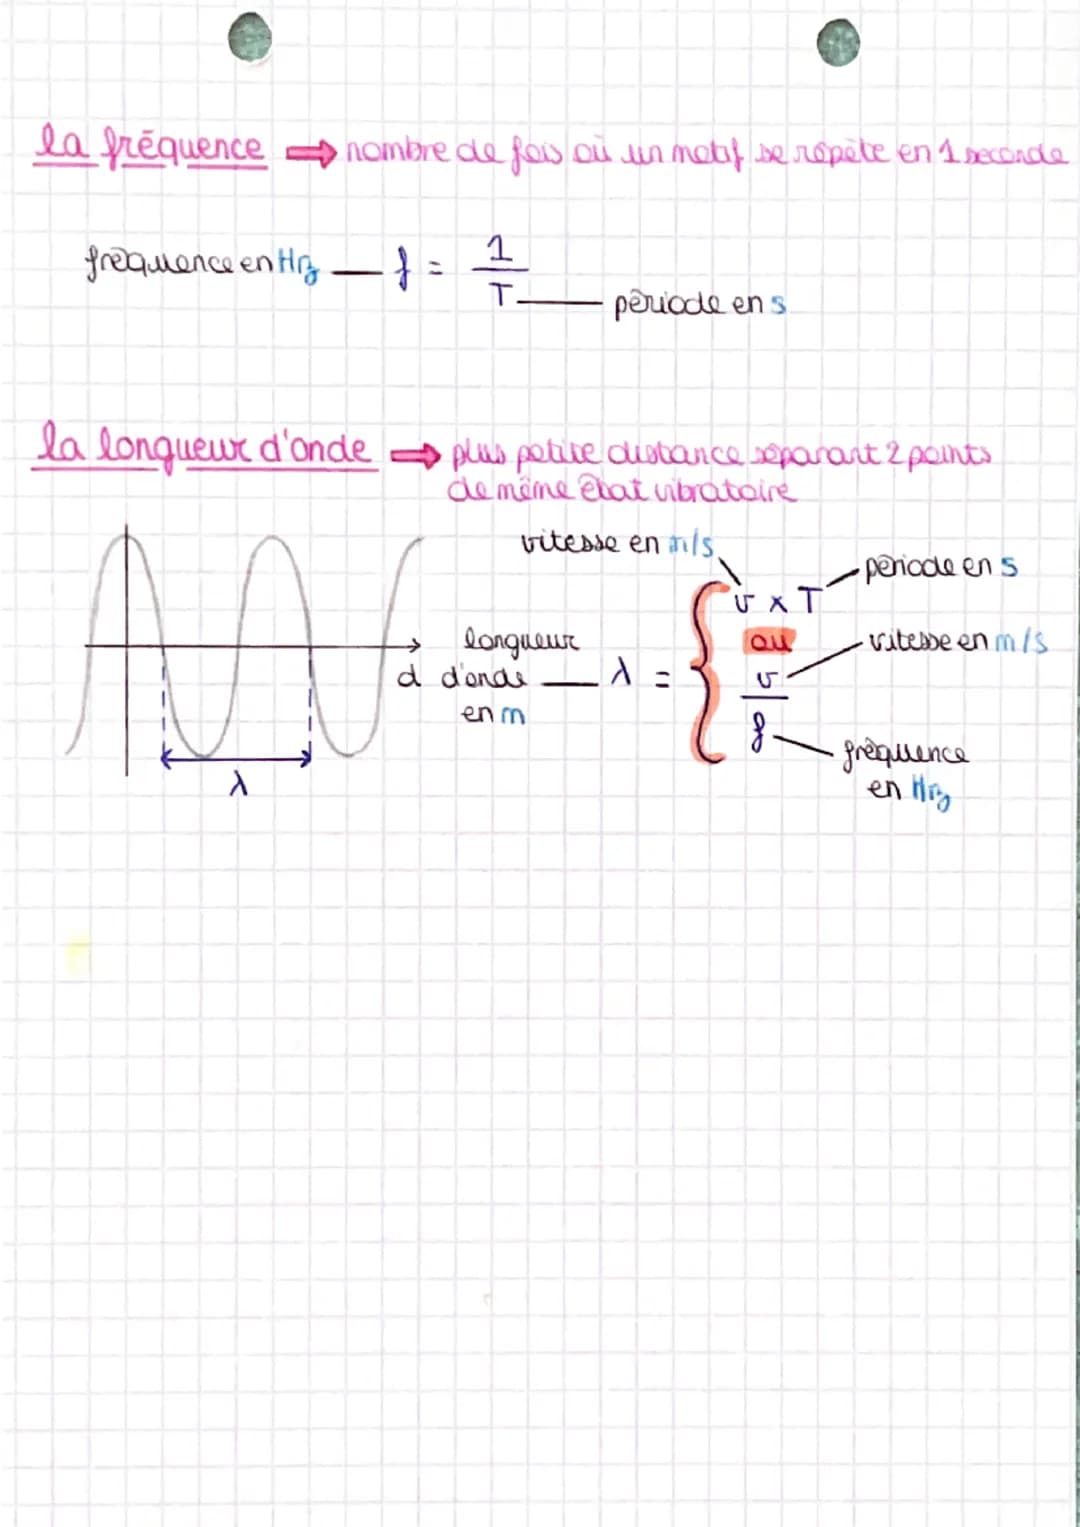 la fréquence ⇒ nombre de fois où un motif se répète en 1 seconde
fréquence en Hz — f = 1/T — période en s
la longueur d'onde ⇒ plus petite distance séparant 2 points
de même état vibratoire
vitesse en m/s
v × T
période en s
ou
vitesse en m/s
longueur
d'onde — λ =
en m
v
f
fréquence
en Hz
d
λ